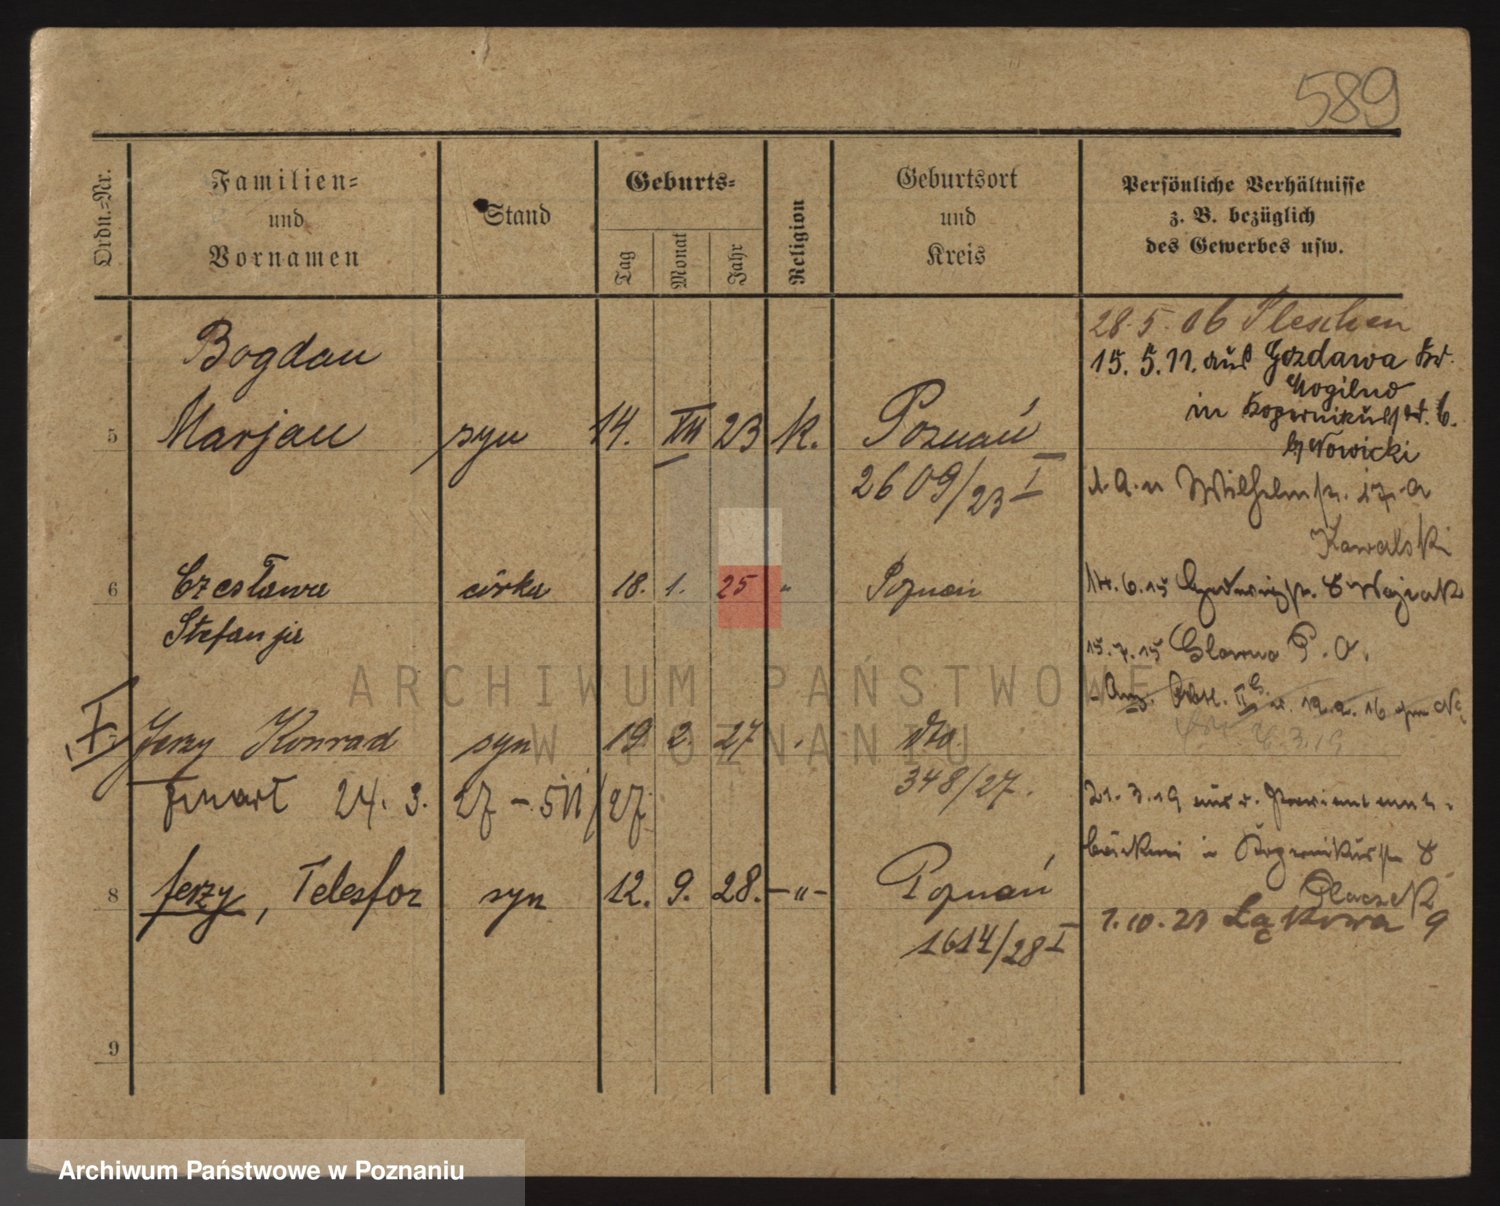 589
Ordn.-Nr.
Familien-
und
Vornamen
Stand
Geburts-
Tag
Monat
Jahr
Religion
Geburtsort
und
Kreis
Persönliche Verhältnisse
z. B. bezüglich
des Gewerbes usw.
28.5.06 Pleschen
15.5.11. aus Gozdawa Kr.
Mogilno
in Kopernikusstr. 6.
Nowicki
Bogdan
5 Marjan syn 14. VIII 23 k. Poznań
2609/23 I
Wilhelmstr. 17 a
Kowalski
6 Czesława córka 18. 1. 25 " Poznań
Stefanja
14.6.15 8 Wojciak
15.7.15 Glowno P. O.
7 Jerzy Konrad syn 19. 2. 27 dto.
348/27.
zmarł 24. 3. 27 - 511/27
21.3.19 aus d.
in Kopernikusstr 8
Placzek
8 Jerzy, Telesfor syn 12. 9. 28. -"- Poznań
1614/28 I
1.10.23 Łąkowa 9
9
ARCHIWUM PAŃSTWOWE
W POZNANIU
Archiwum Państwowe w Poznaniu